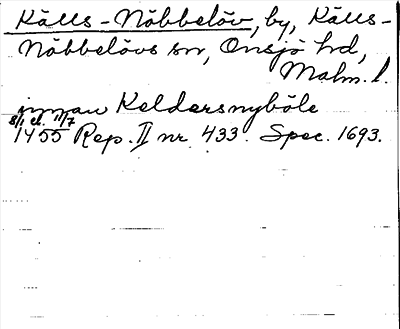 Källs-Nöbbelöv, by, Källs-
Nöbbelövs sn, Onsjö hd,
Malm. l.
innan Keldersnyböle
8/1 el. 11/7
1455 Rep. II nr 433. Spec. 1693.